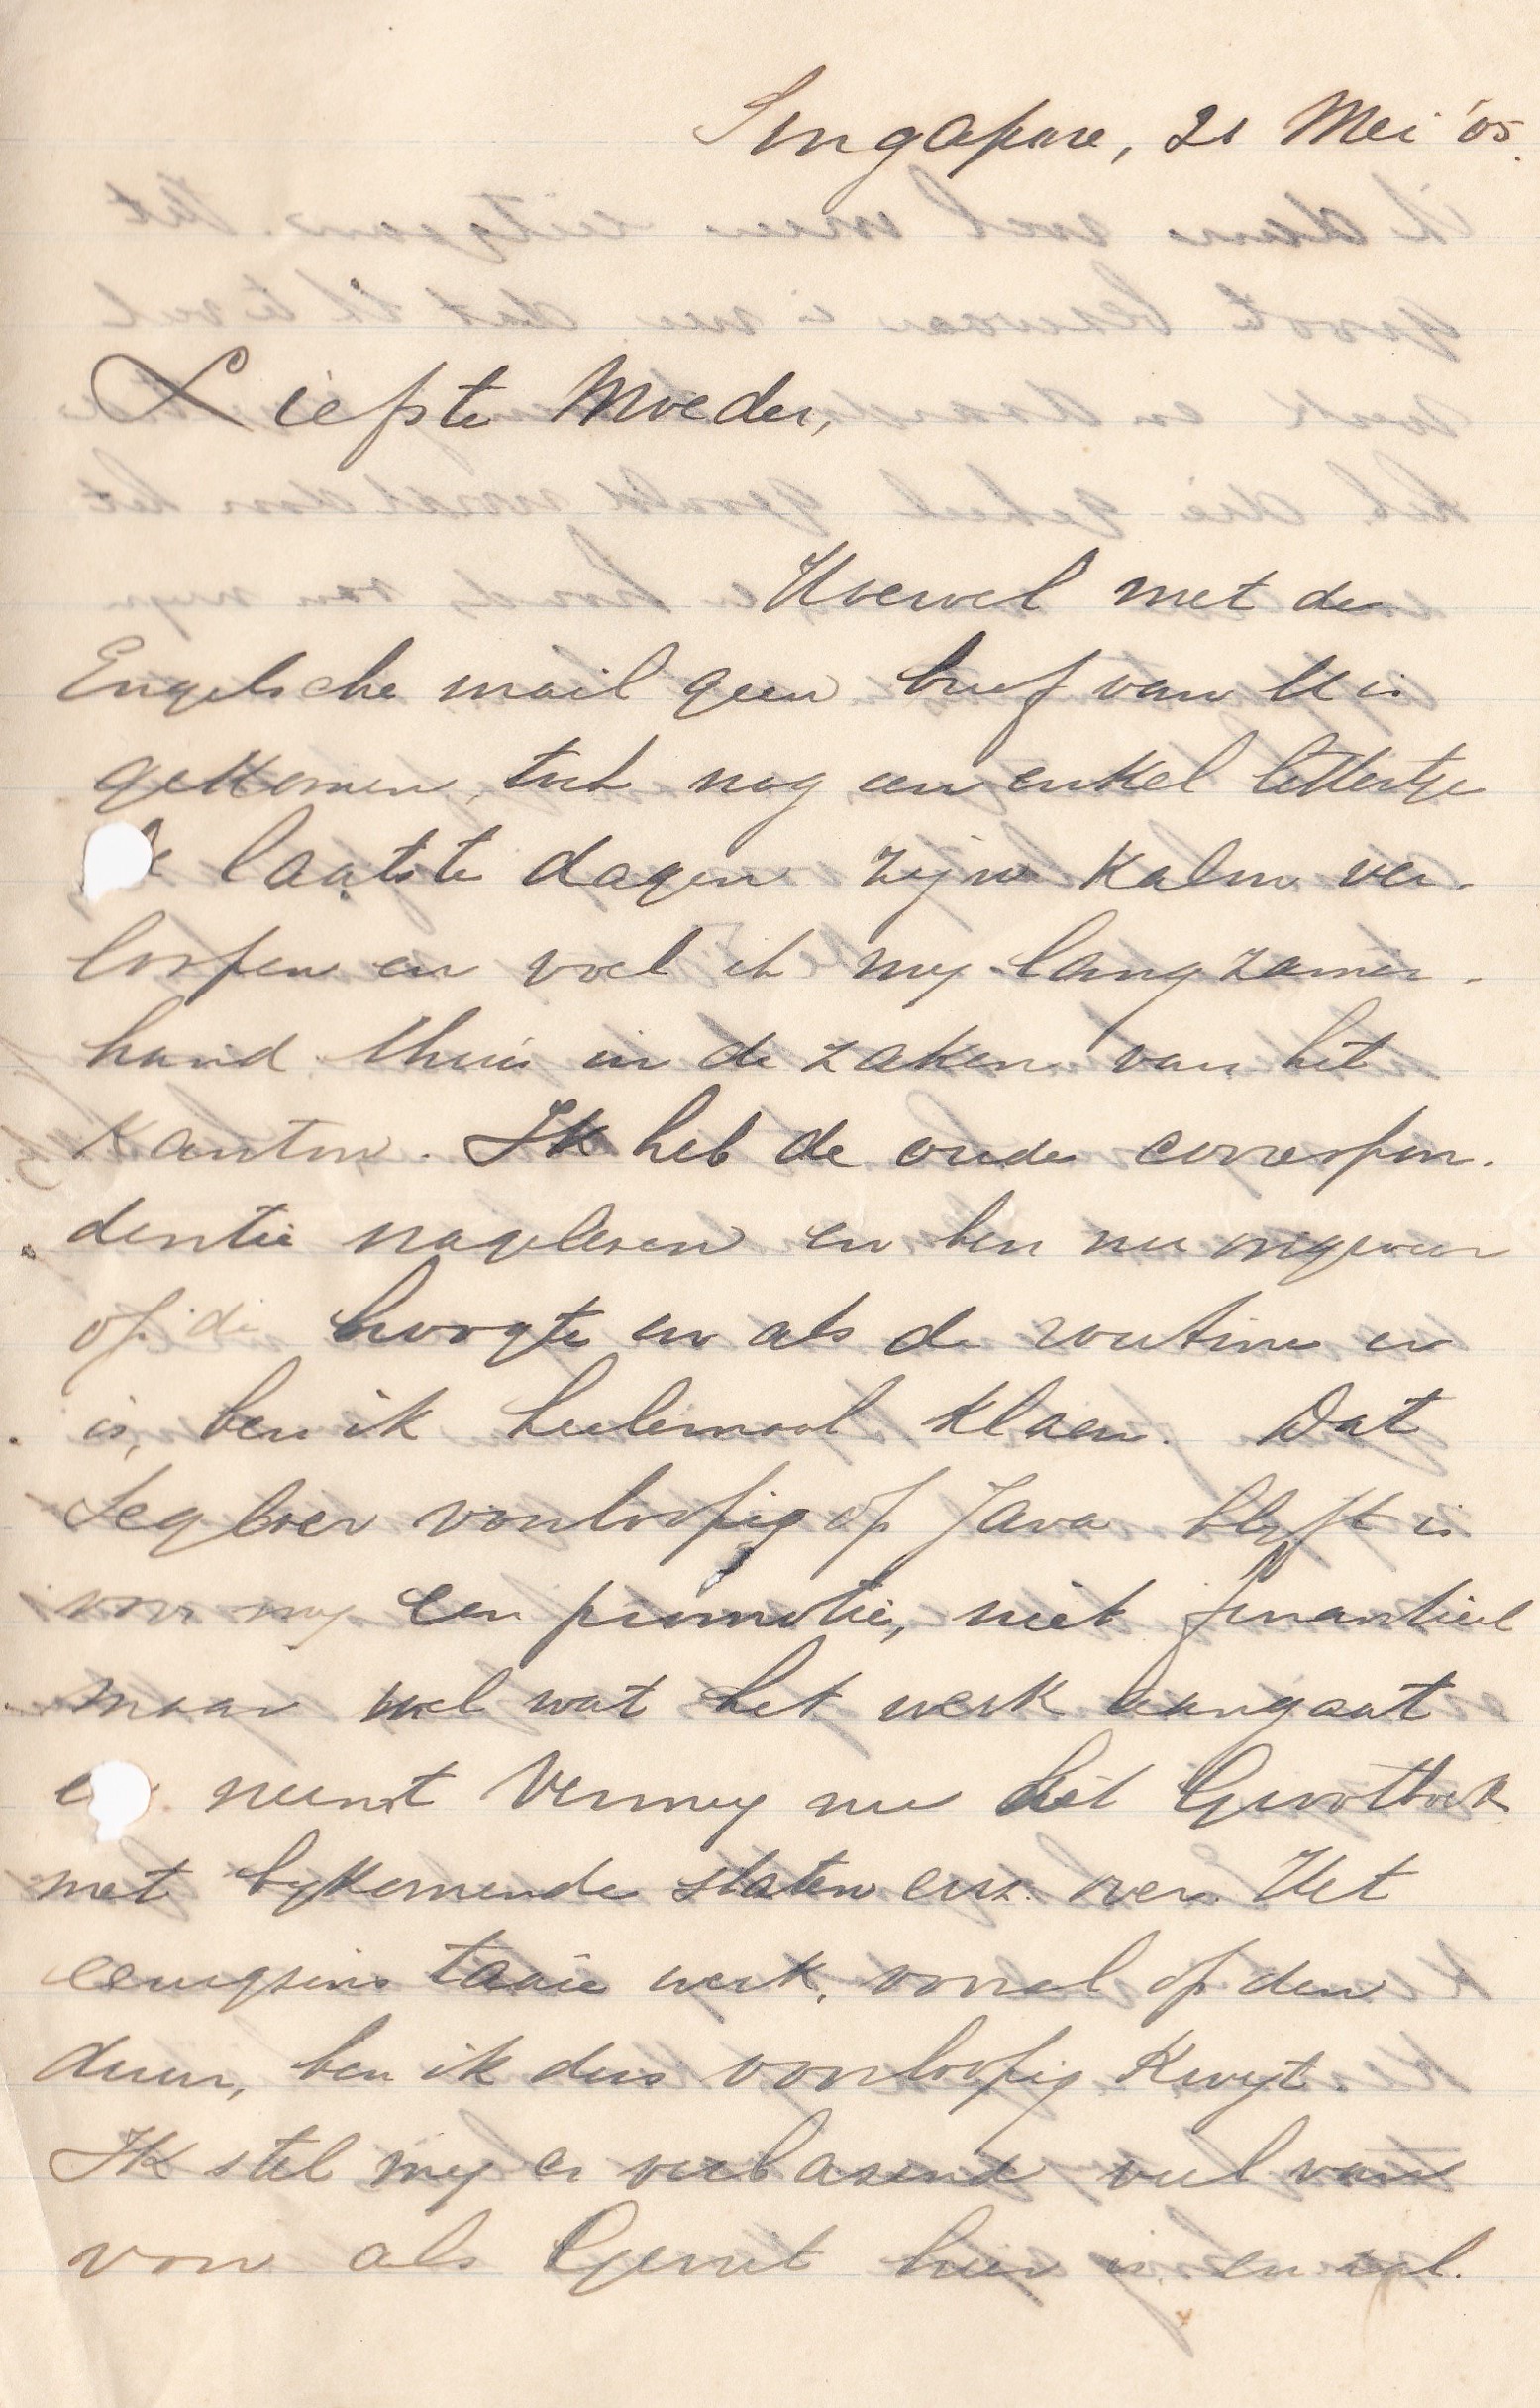 Singapore, 21 Mei '05.
Liefste Moeder,
Hoewel met de
Engelsche mail geen brief van U is
gekomen, toch nog een enkel lettertje
De laatste dagen zijn kalm ver-
loopen en voel ik my langzamer-
hand thuis in de zaken van het
Kantoor. Ik heb de oude correspon-
dentie nagelezen en ben nu ongeveer
op de hoogte en als de routine er
is, ben ik heelemaal klaar. Dat
voorloopig op Java blyft is
voor my een promotie, niet financieel
maar wel wat het werk aangaat
en neemt Vermey nu het Grootboek
met bykomende staten enz. over. Het
eenigsins taaie werk, vooral op den
duur, ben ik dus voorloopig kwyt.
Ik stel my er verbazend veel van
voor als Gerrit hier is en zal